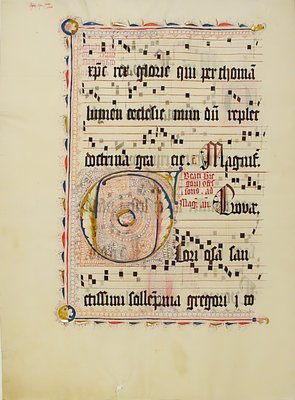 xpe rex glorie qui per thomā
lumen ecclesie mun dū replet
doctrina gra cie. Magnif.
Beati Gre
gorii
ad
Magnif. an. Novar.
Glori osa san
ctissimi sollepnia gregori i to